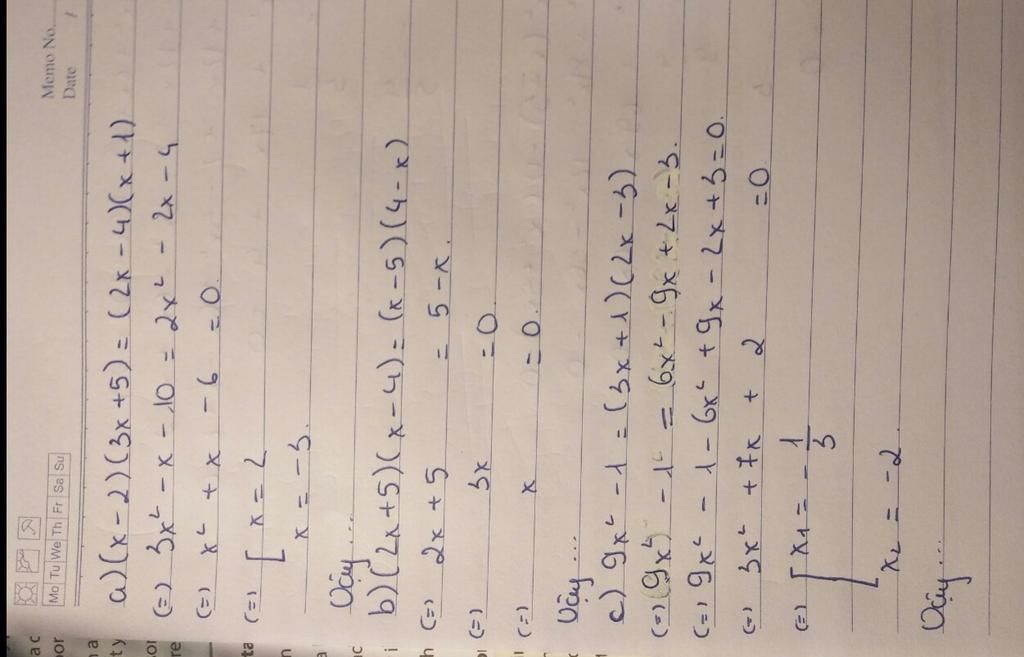 Memo No.
Date /
Mo Tu We Th Fr Sa Su
a) (x-2)(3x+5) = (2x-4)(x+1)
(=) 3x² - x - 10 = 2x² - 2x - 4
(=) x² + x - 6 = 0
(=) [ x = 2
x = -3.
Vậy...
b) (2x+5)(x-4) = (x-5)(4-x)
(=) 2x + 5 = 5 - x.
(=) 3x = 0
(=) x = 0.
Vậy...
c) 9x² - 1 = (3x+1)(2x-3)
(=) (9x²) - 1 = 6x² - 9x + 2x - 3.
(=) 9x² - 1 - 6x² + 9x - 2x + 3 = 0.
(=) 3x² + 7x + 2 = 0
(=) [ x1 = -1/3
x2 = -2
Vậy...